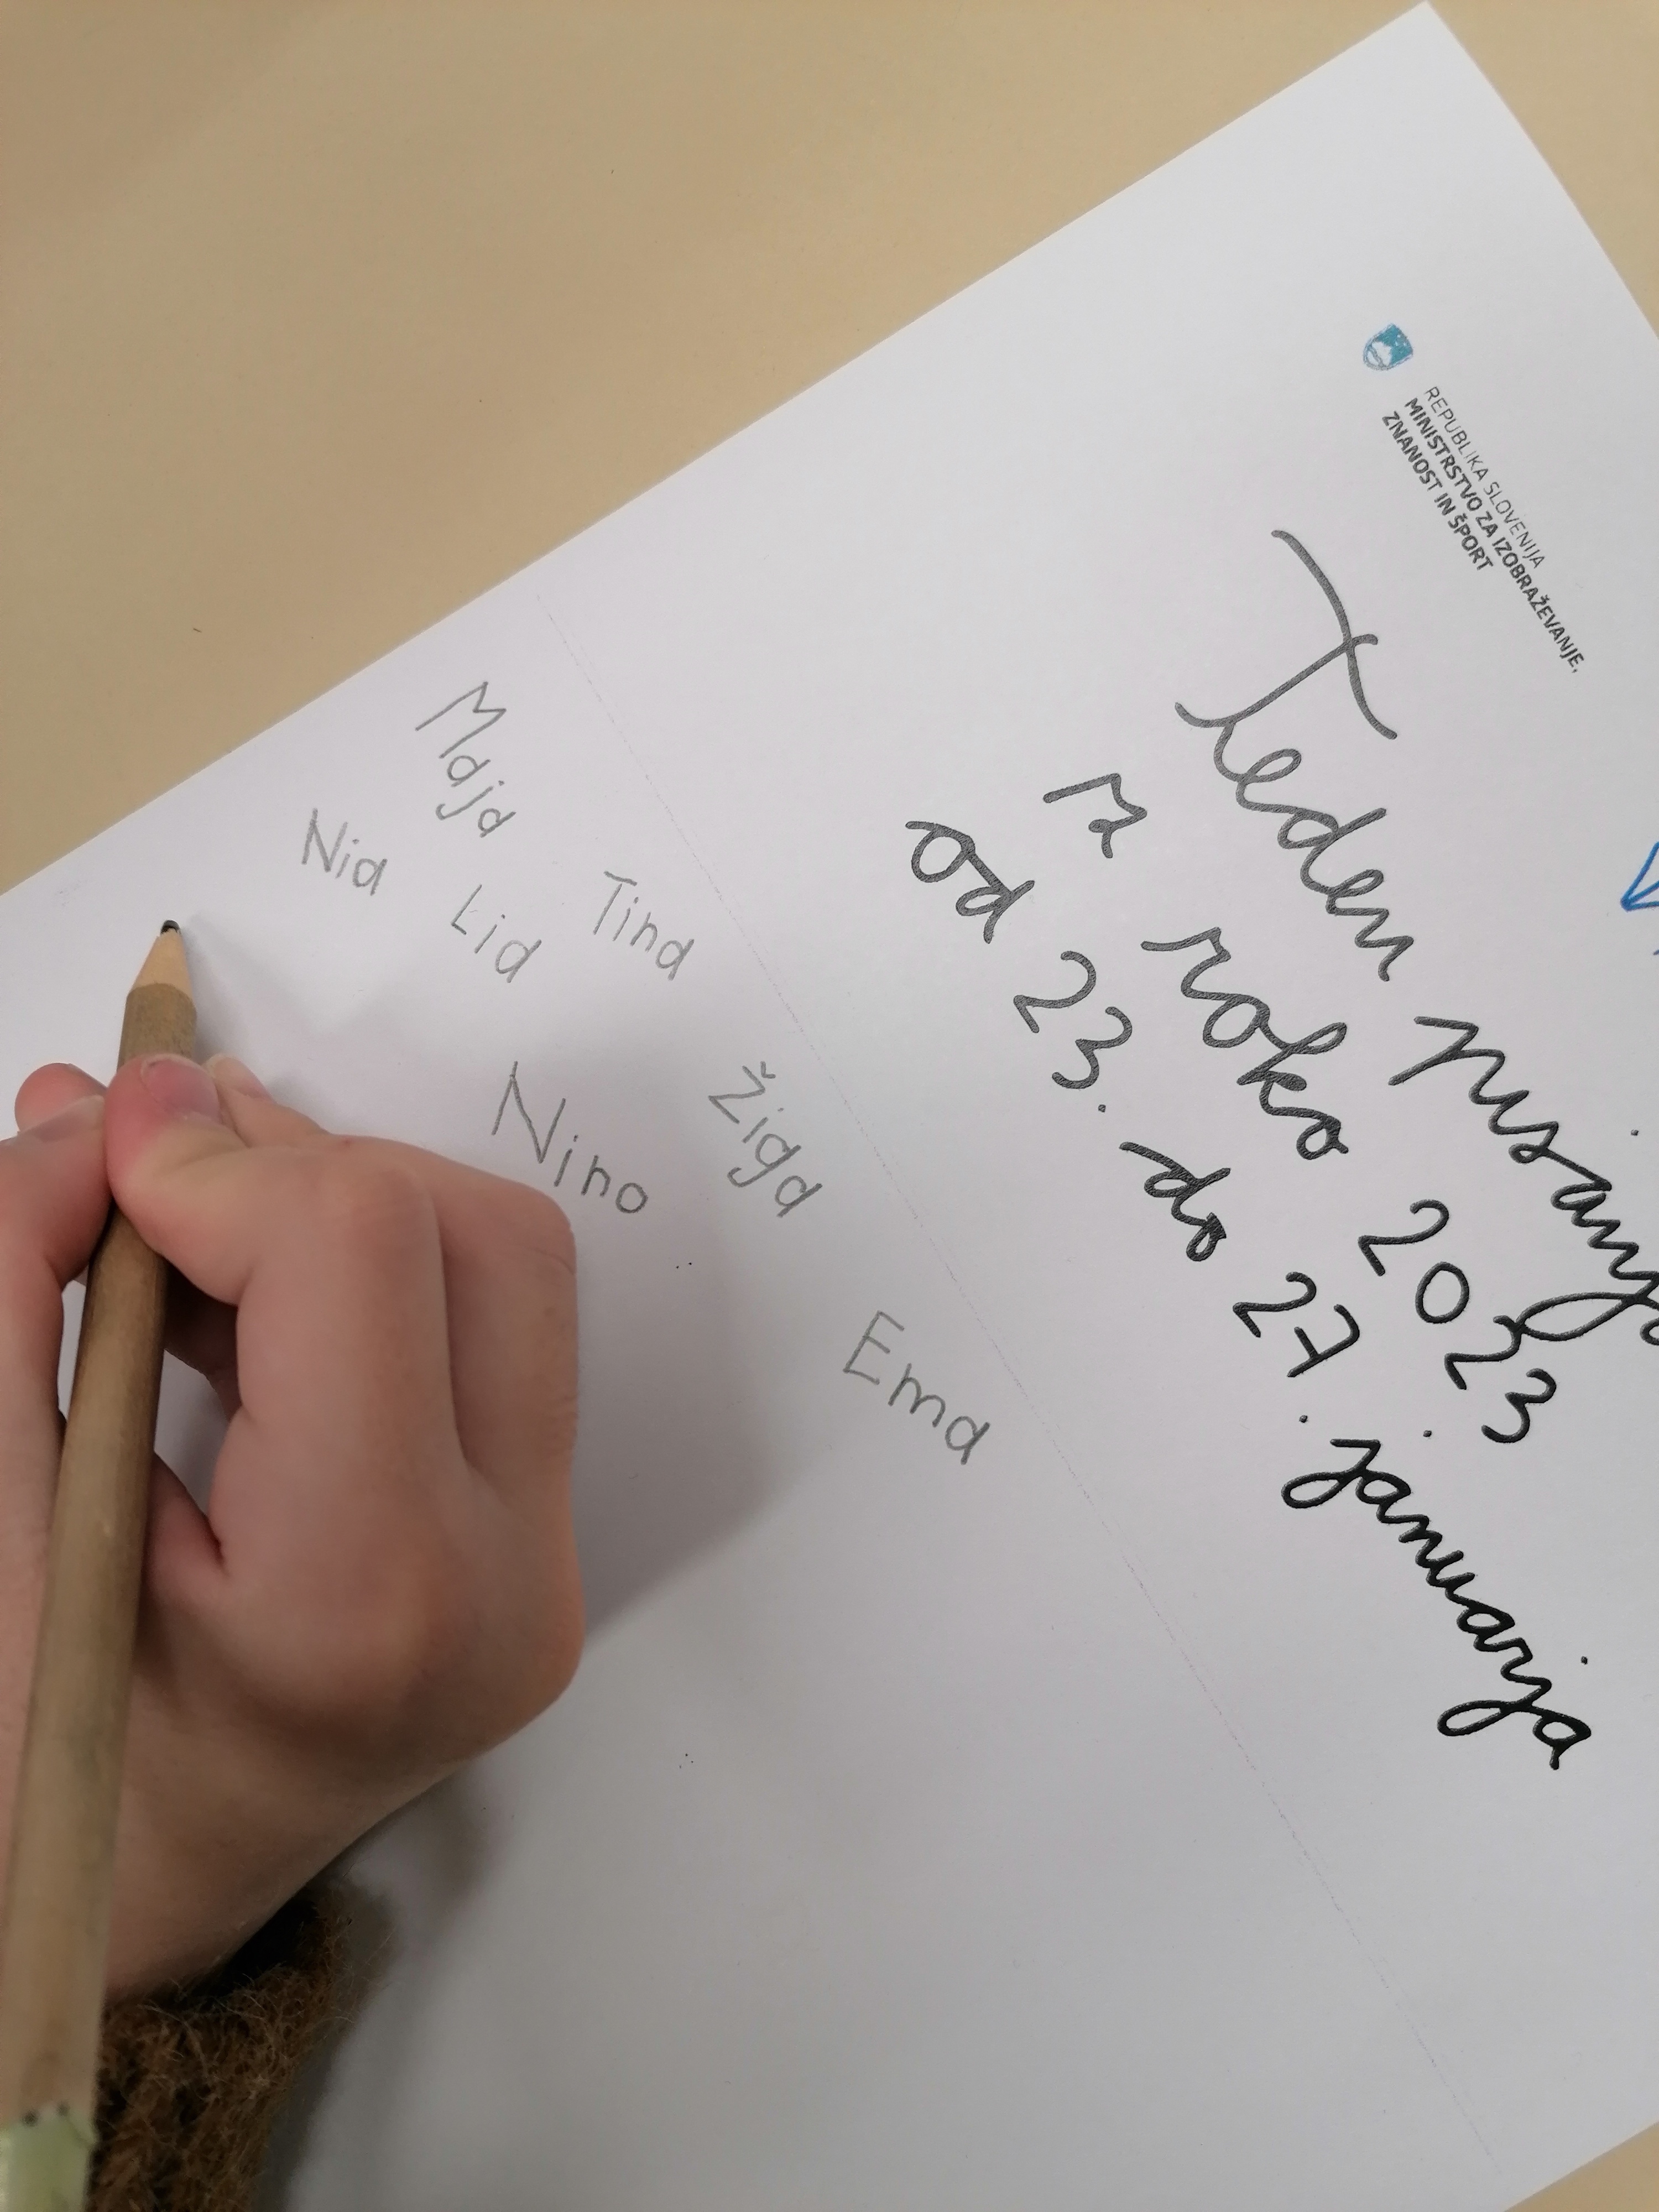 REPUBLIKA SLOVENIJA
MINISTRSTVO ZA IZOBRAŽEVANJE,
ZNANOST IN ŠPORT
Teden pisanja
z roko 2023
od 23. do 27. januarja
Maja
Tina
Žiga
Ema
Nia
Lia
Nino